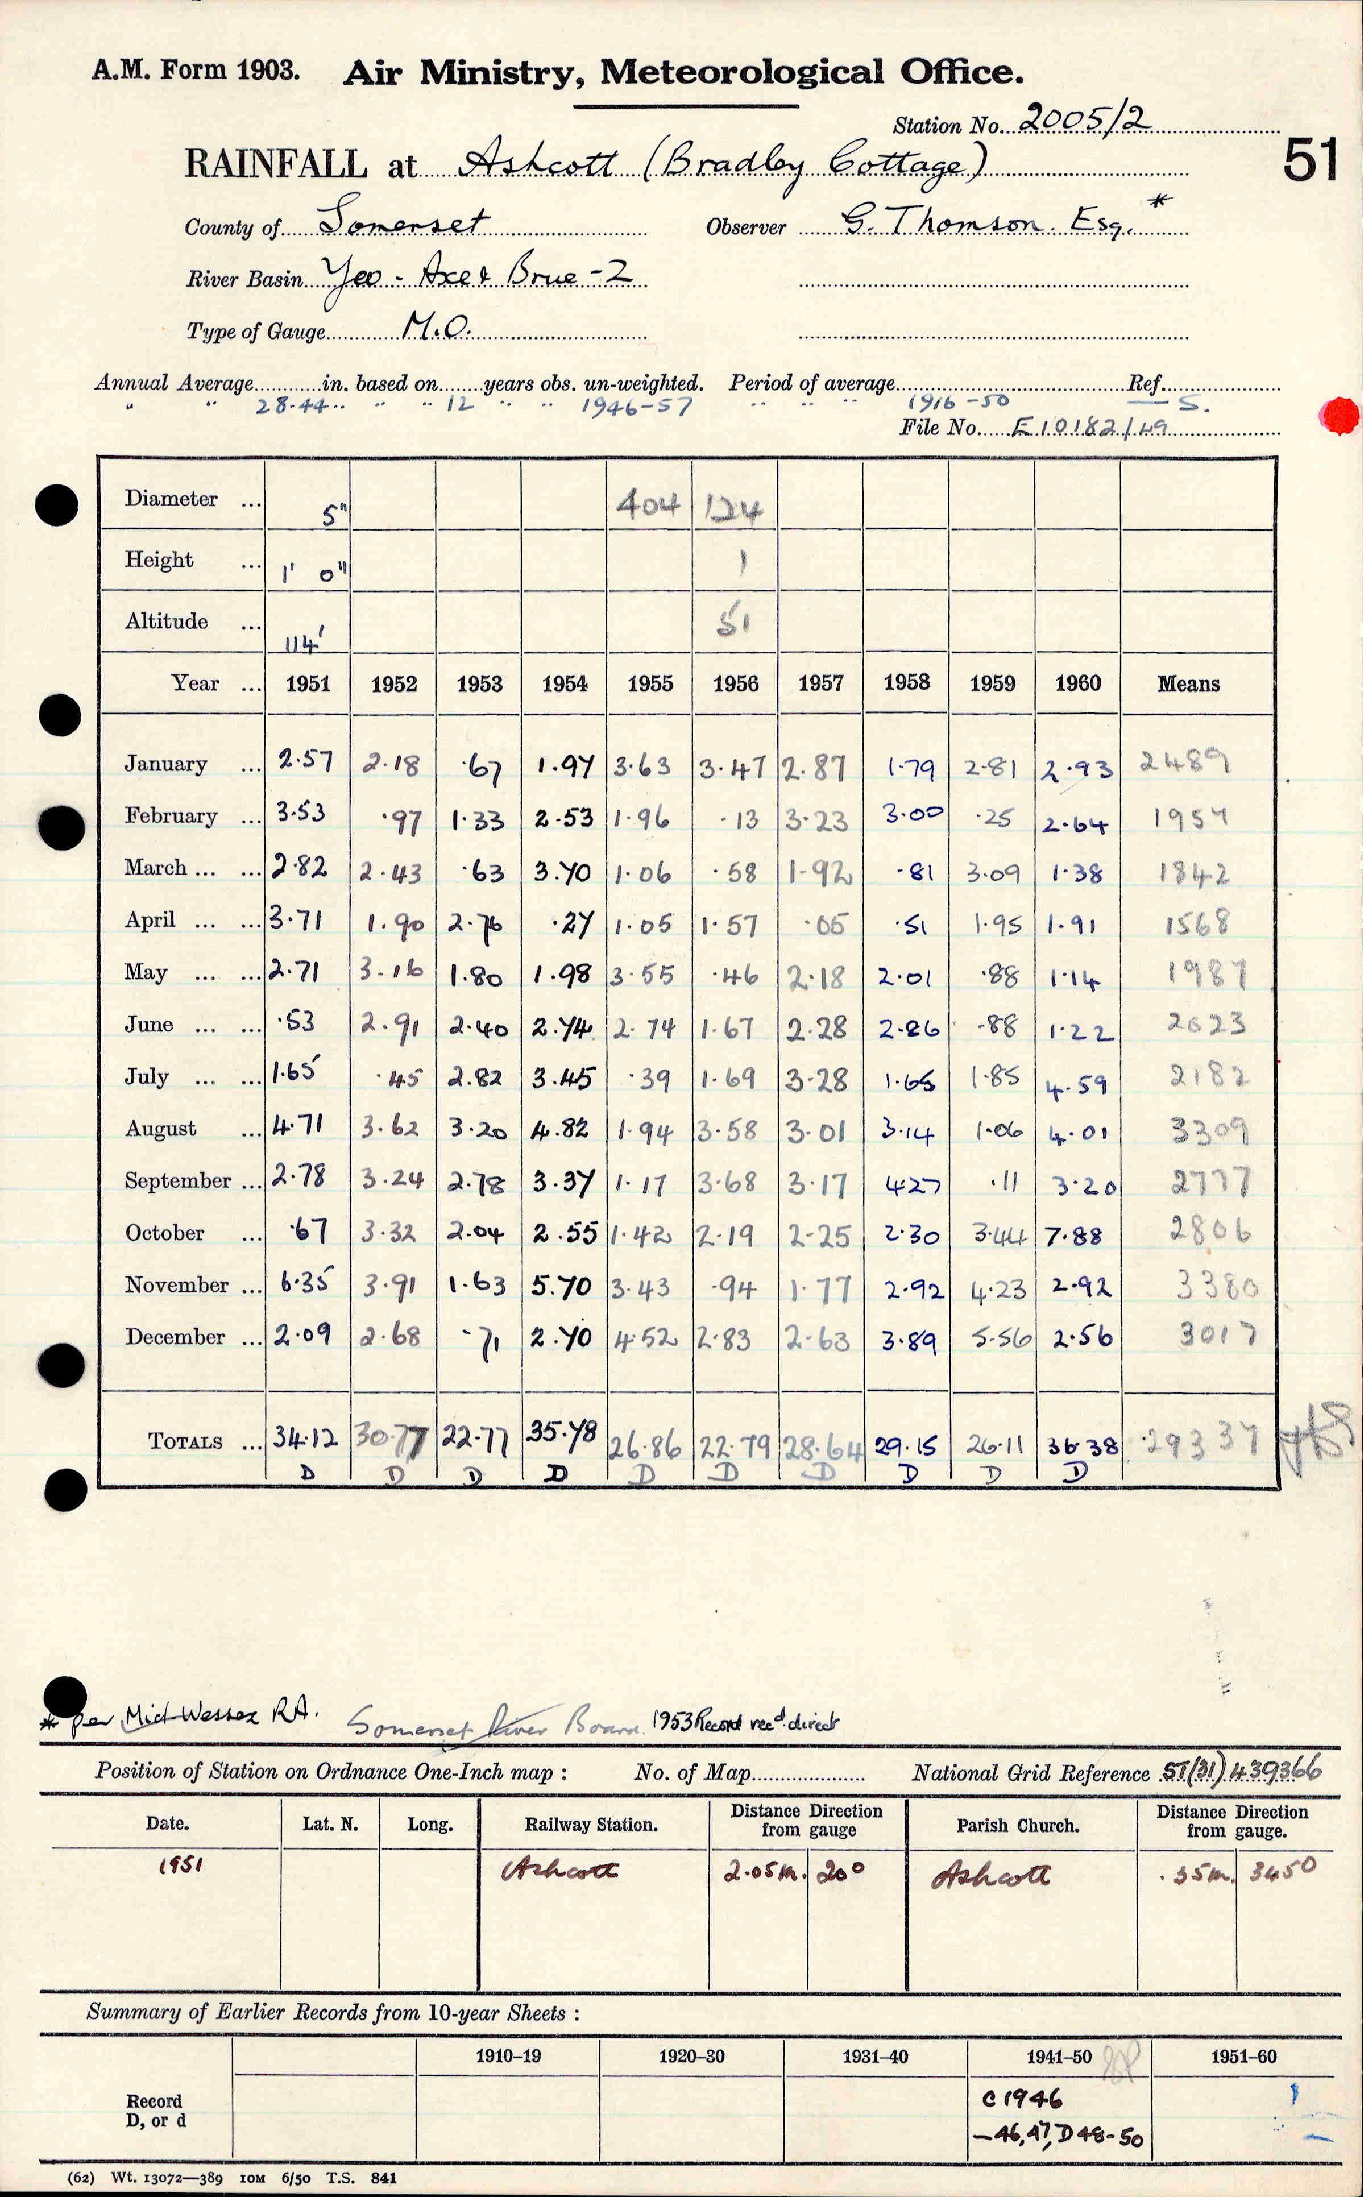 A.M. Form 1903. Air Ministry, Meteorological Office.
Station No. 2005/2
51
RAINFALL at Ashcott (Bradley Cottage)
County of Somerset Observer G. Thomson. Esq. *
River Basin Yeo - Axe & Brue - 2
Type of Gauge M.O.
Annual Average in. based on years obs. un-weighted. Period of average Ref.
" " 28.44 " " 12 " " 1946-57 " " " 1916-50 — S.
File No. E10182/49
Diameter ... 5" 404 124
Height ... 1' 0" 1
Altitude ... 114' 51
Year ... 1951 1952 1953 1954 1955 1956 1957 1958 1959 1960 Means
January ... 2.57 2.18 .67 1.97 3.63 3.47 2.87 1.79 2.81 2.93 2489
February ... 3.53 .97 1.33 2.53 1.96 .13 3.23 3.00 .25 2.64 1957
March ... ... 2.82 2.43 .63 3.70 1.06 .58 1.92 .81 3.09 1.38 1842
April ... ... 3.71 1.90 2.76 .27 1.05 1.57 .05 .51 1.95 1.91 1568
May ... ... 2.71 3.16 1.80 1.98 3.55 .46 2.18 2.01 .88 1.14 1987
June ... ... .53 2.91 2.40 2.74 2.74 1.67 2.28 2.86 .88 1.22 2023
July ... ... 1.65 .45 2.82 3.45 .39 1.69 3.28 1.65 1.85 4.59 2182
August ... 4.71 3.62 3.20 4.82 1.94 3.58 3.01 3.14 1.06 4.01 3309
September ... 2.78 3.24 2.78 3.37 1.17 3.68 3.17 4.27 .11 3.20 2777
October ... .67 3.32 2.04 2.55 1.42 2.19 2.25 2.30 3.44 7.88 2806
November ... 6.35 3.91 1.63 5.70 3.43 .94 1.77 2.92 4.23 2.92 3380
December ... 2.09 2.68 .71 2.70 4.52 2.83 2.63 3.89 5.56 2.56 3017
TOTALS ... 34.12 30.77 22.77 35.78 26.86 22.79 28.64 29.15 26.11 36.38 29337
D D D D D D D D D D
* per Mid Wessex R.A. Somerset River Board. 1953 Record recd. direct
Position of Station on Ordnance One-Inch map : No. of Map National Grid Reference ST(31)439366
Date. Lat. N. Long. Railway Station. Distance Direction from gauge Parish Church. Distance Direction from gauge.
1951 Ashcott 2.05m. 20° Ashcott .35m. 345°
Summary of Earlier Records from 10-year Sheets :
1910–19 1920–30 1931–40 1941–50 1951–60
Record
D, or d
C 1946
— 46, 47, D 48-50
(62) Wt. 13072—389 10M 6/50 T.S. 841